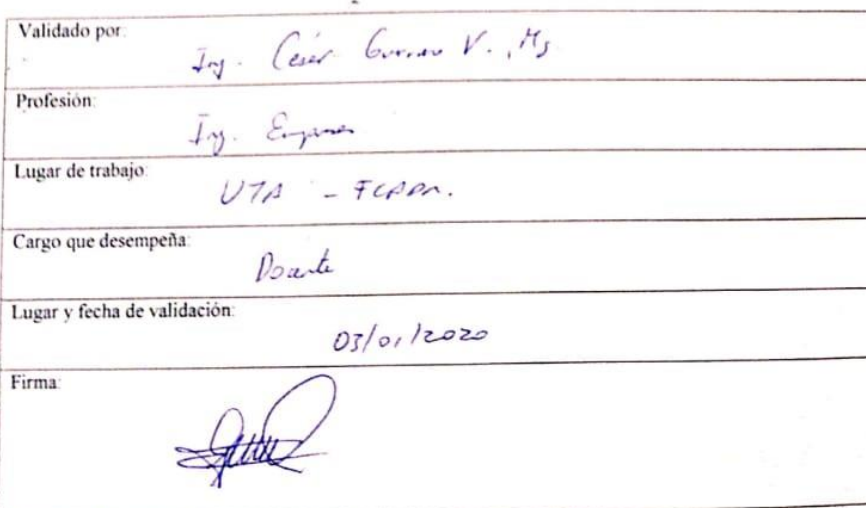 Validado por:
Ing. César Guerrero V., Mg
Profesión:
Ing. Empresas
Lugar de trabajo:
UTA - FCADM.
Cargo que desempeña:
Docente
Lugar y fecha de validación:
03/01/2020
Firma: